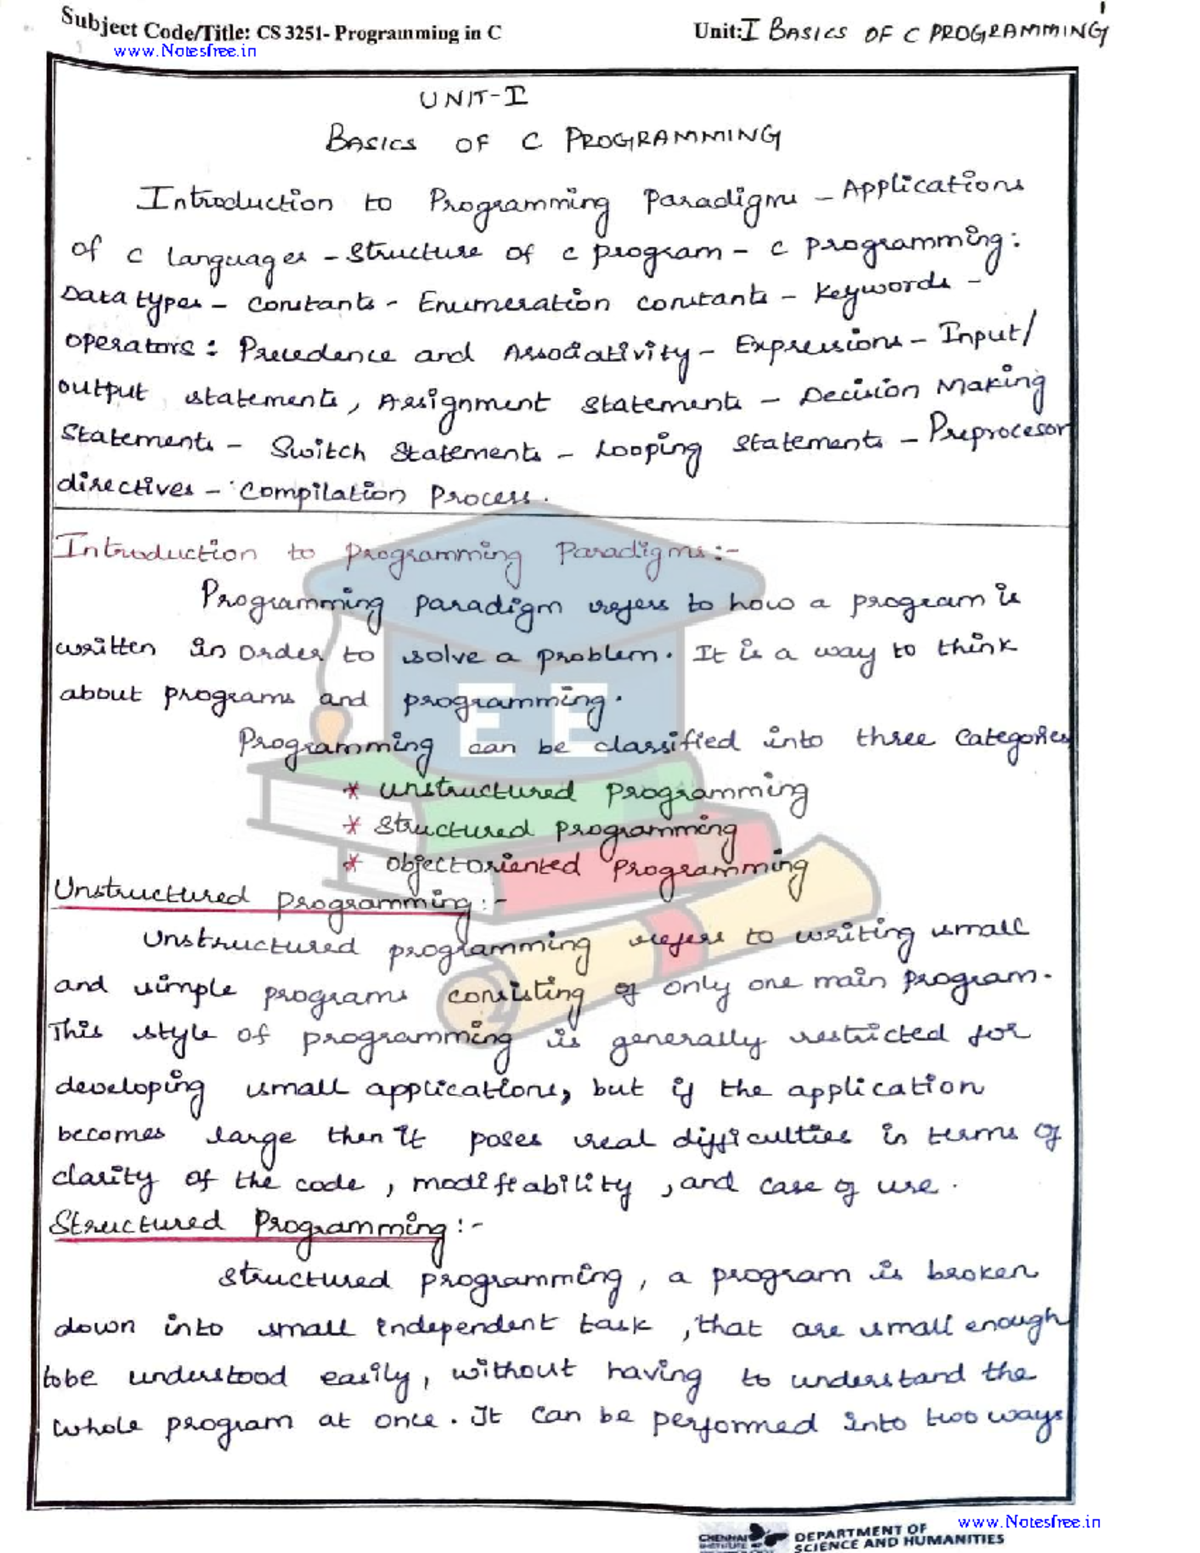 1
Subject Code/Title: CS 3251- Programming in C
Unit: I BASICS OF C PROGRAMMING
www.Notesfree.in
UNIT-I
BASICS OF C PROGRAMMING
Introduction to Programming Paradigms - Applications
of C Languages - Structure of C program - C programming:
Data types - constants - Enumeration constants - Keywords -
operators: Precedence and Associativity - Expressions - Input/
output statements, Assignment statements - Decision Making
Statements - Switch statements - Looping statements - Preprocesor
directives - Compilation Process.
Introduction to programming Paradigms:-
Programming paradigm refers to how a program is
written in order to solve a problem. It is a way to think
about programs and programming.
EE
Programming can be classified into three categories
* unstructured programming
* structured programming
* objectoriented programming
Unstructured programming:-
Unstructured programming refers to writing small
and simple programs consisting of only one main program.
This style of programming is generally restricted for
developing small applications, but if the application
becomes large then it poses real difficulties in terms of
clarity of the code, modifiability, and ease of use.
Structured Programming:-
structured programming, a program is broken
down into small independent task, that are small enough
tobe understood easily, without having to understand the
whole program at once. It can be performed into two ways
www.Notesfree.in
CHENNAI
INSTITUTE OF
DEPARTMENT OF
SCIENCE AND HUMANITIES